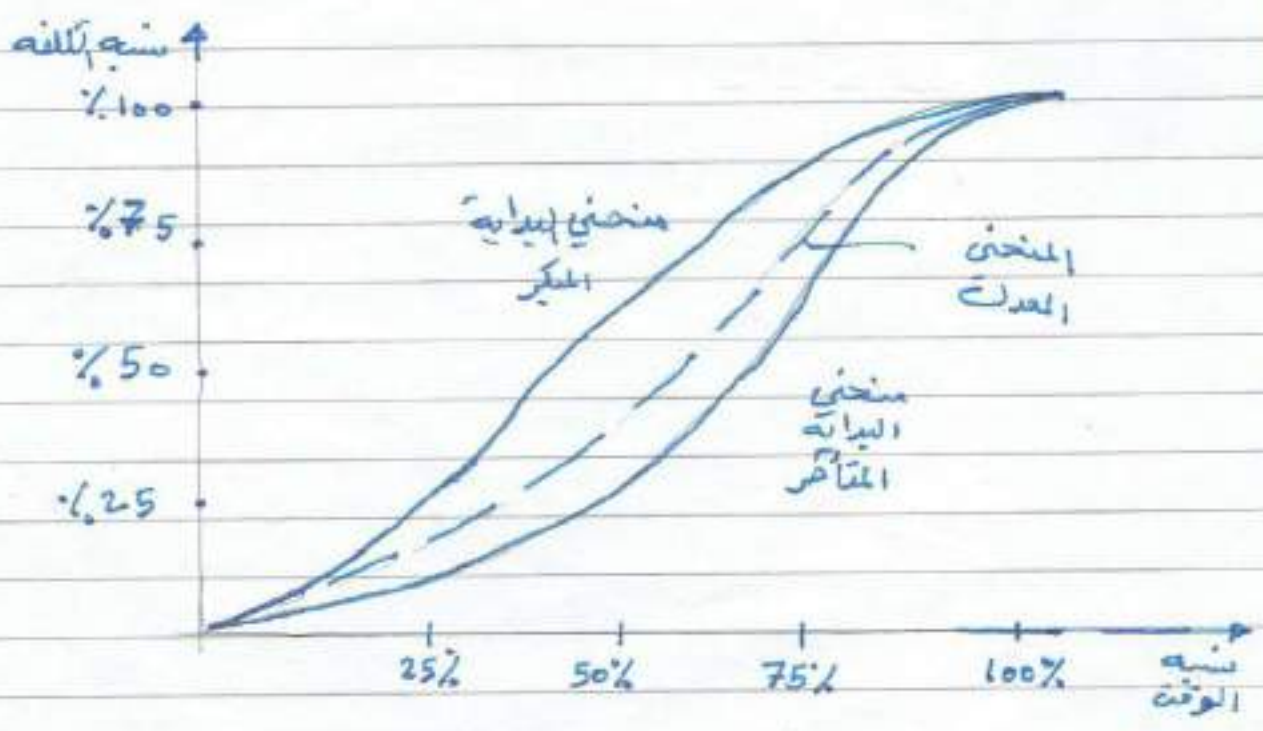 نسبه التكلفه
%100
%75
%50
%25
منحني البداية
المبكر
المنحنى
المعدل
منحني
البداية
المتأخر
25%
50%
75%
100%
نسبه
الوقت